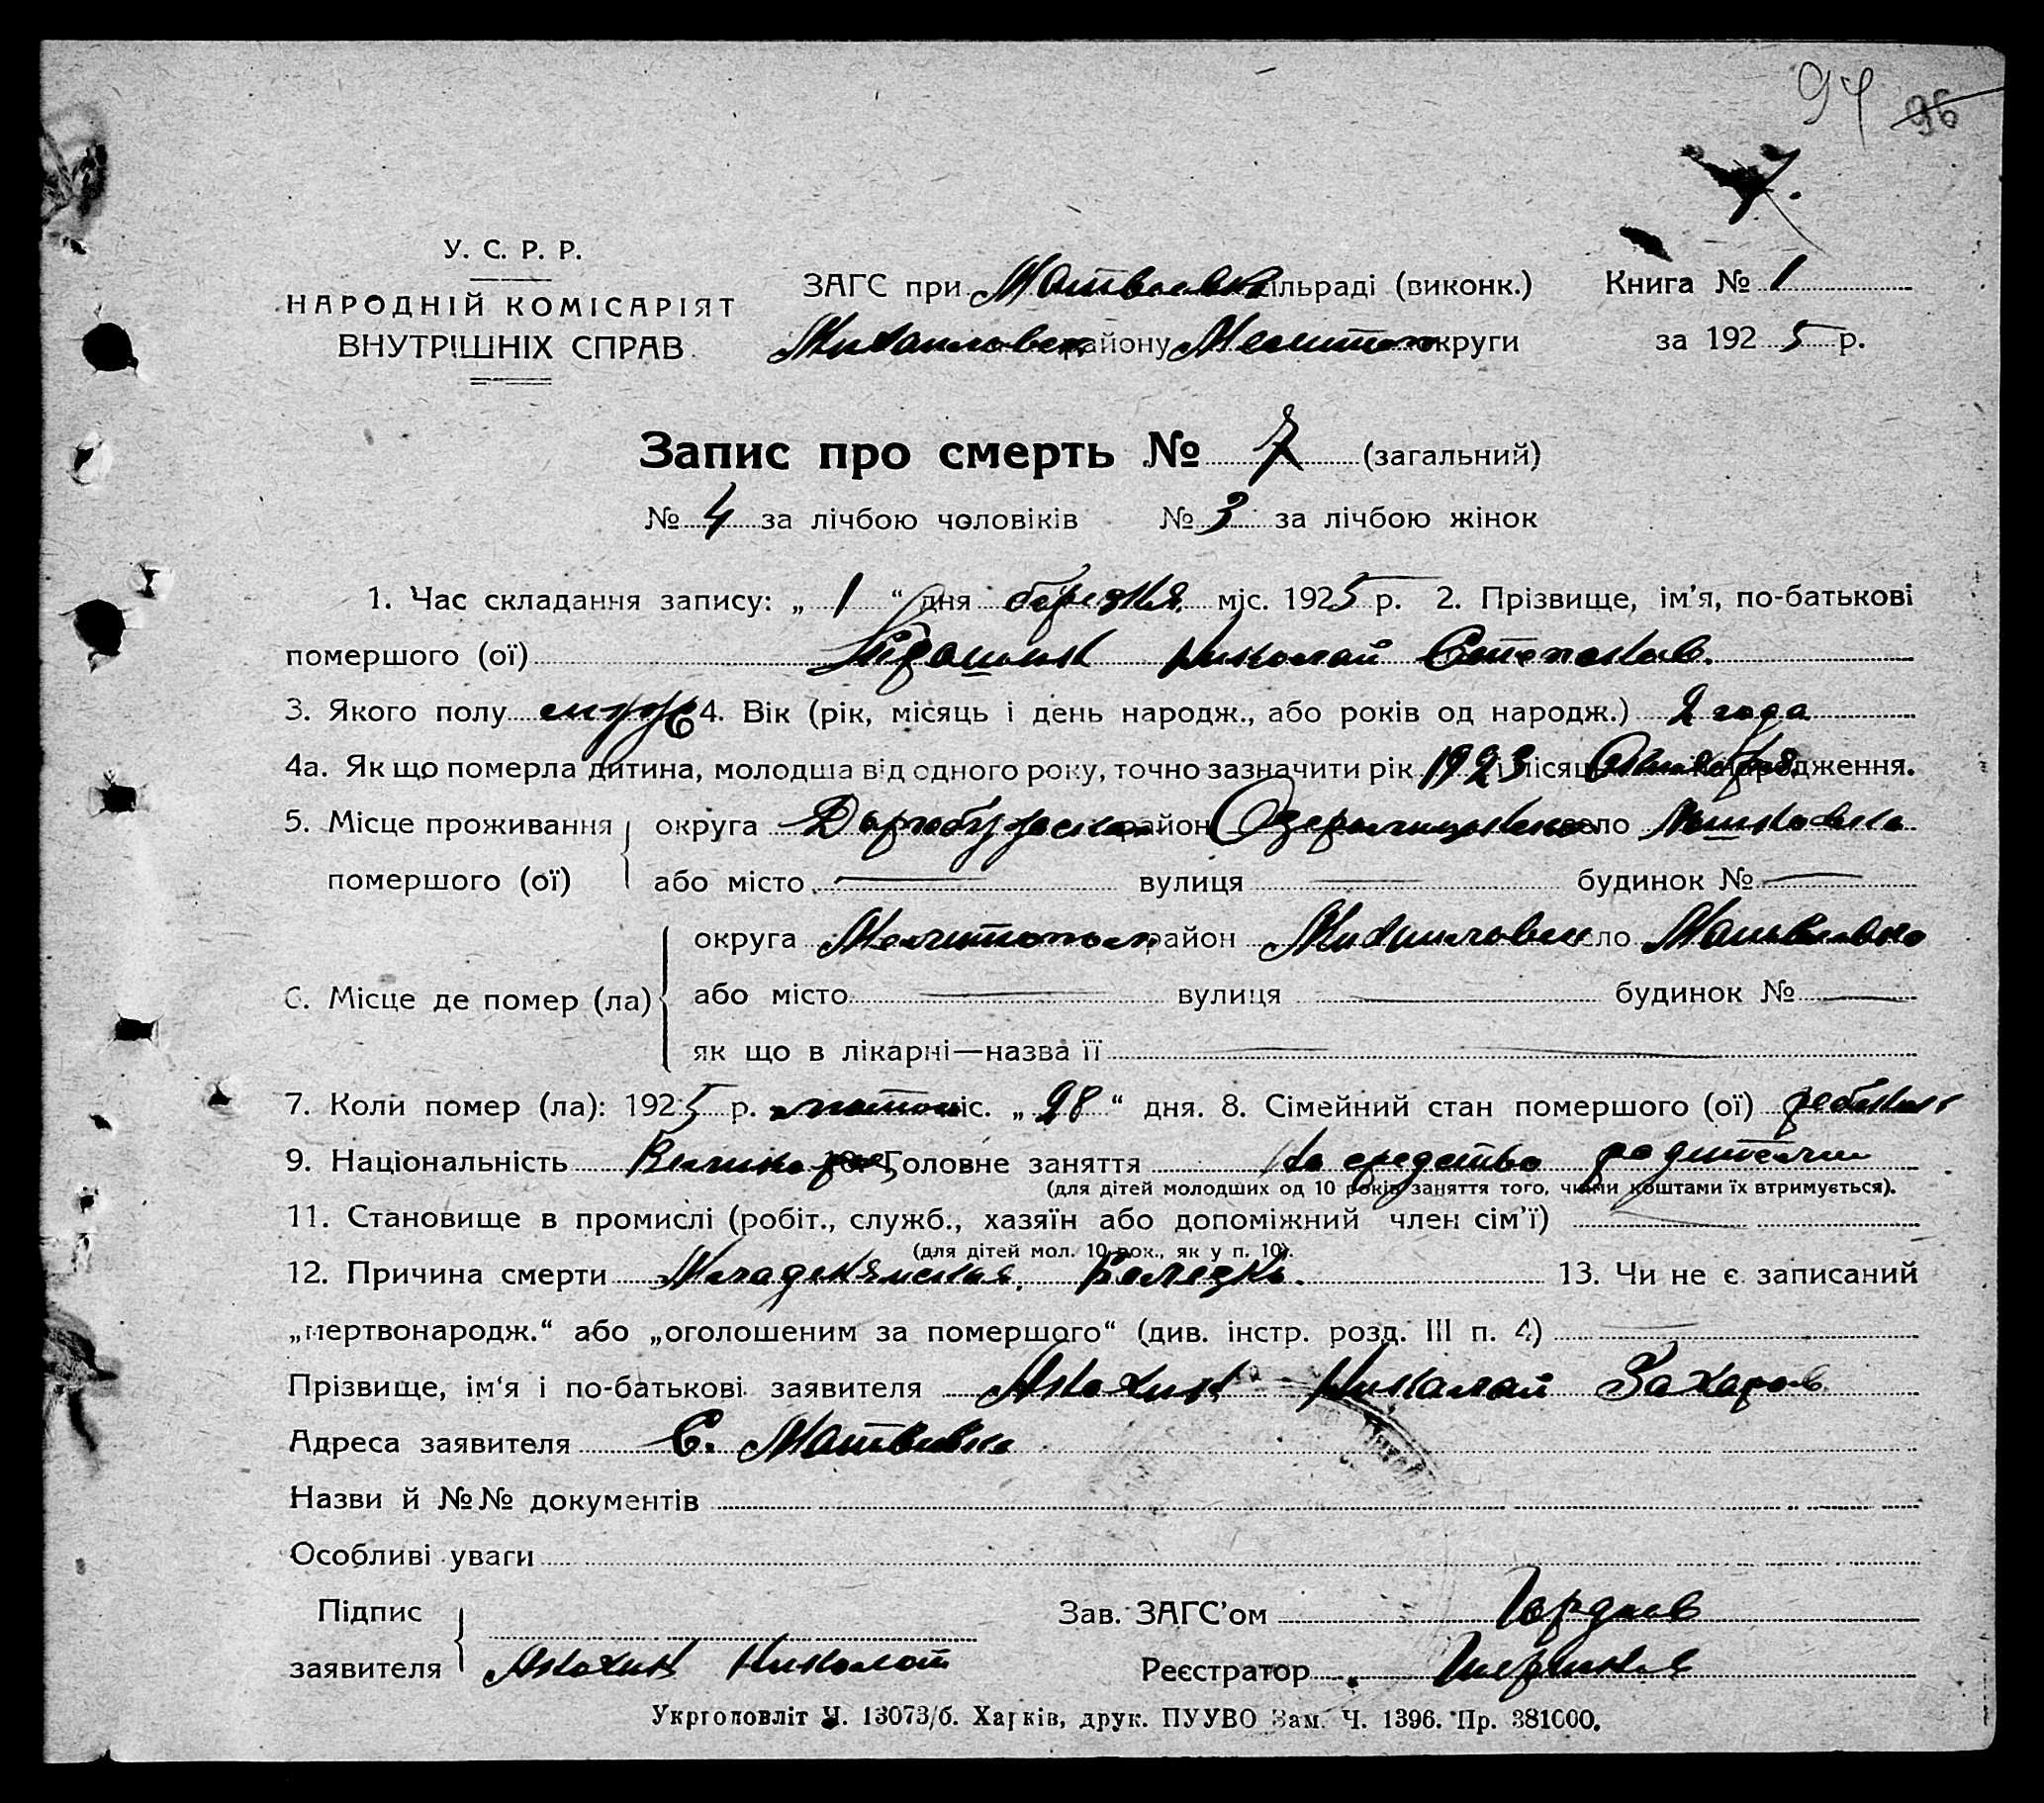 94 96
7.
У. С. Р. Р.
НАРОДНІЙ КОМІСАРІЯТ
ВНУТРІШНІХ СПРАВ
ЗАГС при Матвеевк сільраді (виконк.) Книга № 1
Михайловск району Мелитоп округи за 1925 р.
Запис про смерть № 7 (загальний)
№ 4 за лічбою чоловіків № 3 за лічбою жінок
1. Час складання запису: „ 1 “ дня березня міс. 1925 р. 2. Прізвище, ім’я, по-батькові
помершого (ої) Николай Степанов.
3. Якого полу муж 4. Вік (рік, місяць і день народж., або років од народж.) 2 года
4а. Як що померла дитина, молодша від одного року, точно зазначити рік 1923 і місяць народження.
5. Місце проживання округа район село
помершого (ої) або місто — вулиця — будинок № —
округа Мелитополь район Михайловск село Матвеевка
6. Місце де помер (ла) або місто — вулиця — будинок № —
як що в лікарні—назва її —
7. Коли помер (ла): 1925 р. міс. „ 28 “ дня. 8. Сімейний стан помершого (ої) ребенок
9. Національність Великорос 10. Головне заняття На средства родители
(для дітей молодших од 10 років заняття того, чиїми коштами їх втримується).
11. Становище в промислі (робіт., служб., хазяїн або допоміжний член сім’ї) —
(для дітей мол. 10 рок., як у п. 10).
12. Причина смерти Младенямская Болезнь. 13. Чи не є записаний
„мертвонародж.“ або „оголошеним за помершого“ (див. інстр. розд. III п. 4) —
Прізвище, ім‘я і по-батькові заявителя Анохин Николай Захаров
Адреса заявителя С. Матвеевка
Назви й №№ документів
Особливі уваги
Підпис Зав. ЗАГС’ом Гордиев
заявителя Анохин Николай Реєстратор
Укрголовліт Ч. 13073/б. Харків, друк. ПУУВО Зам. Ч. 1396. Пр. 381000.